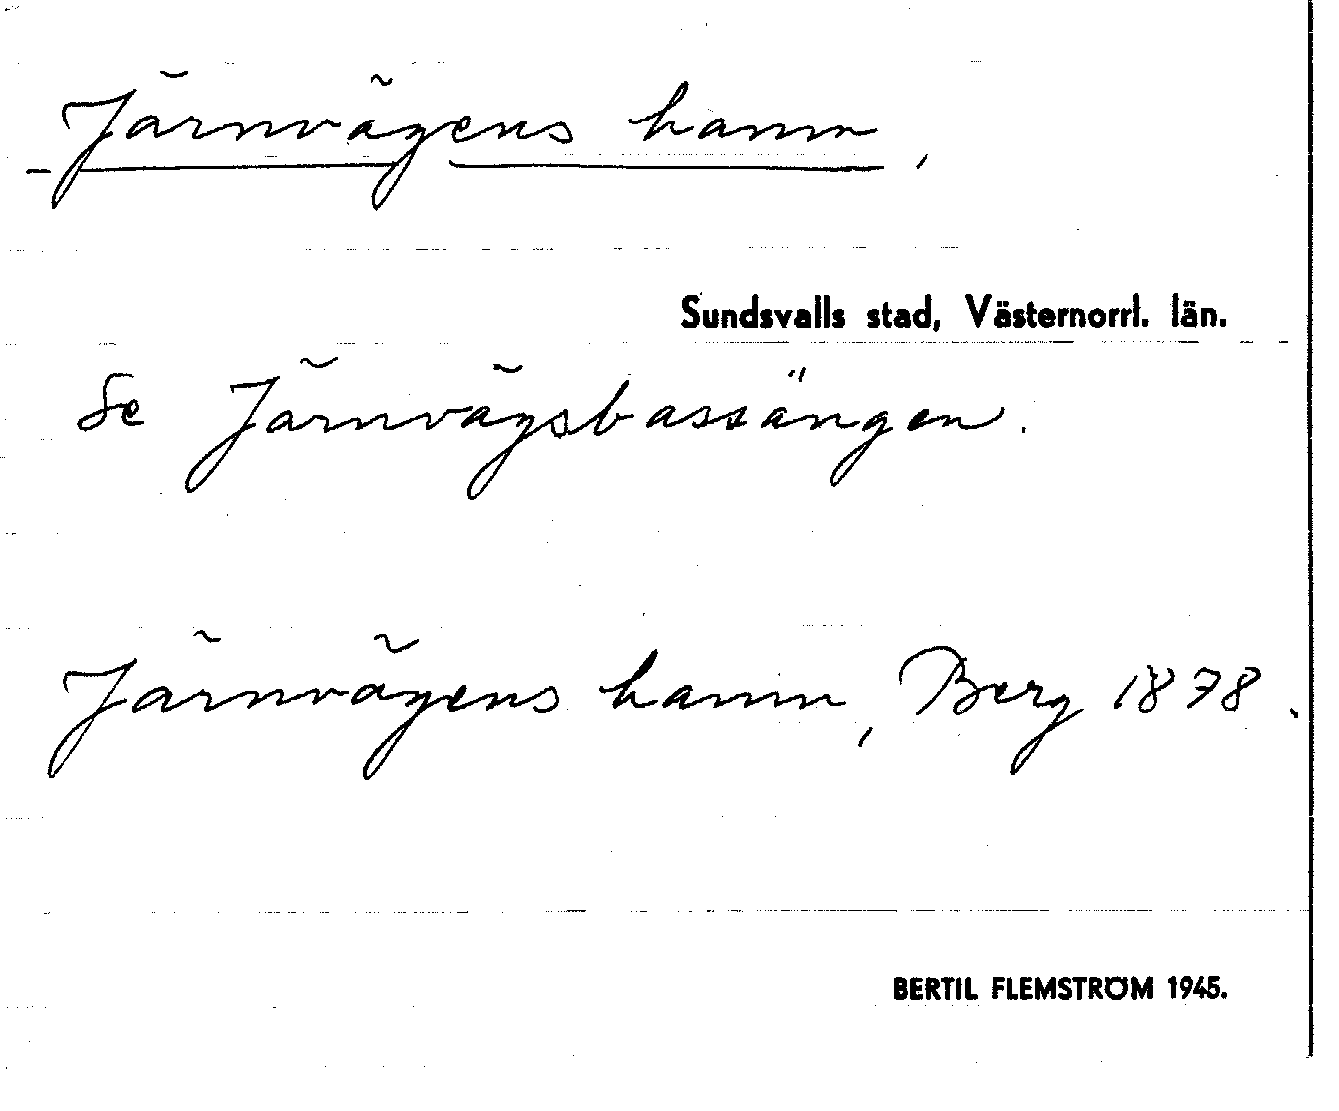 Järnvägens hamn,
Sundsvalls stad, Västernorrl. län.
Se Järnvägsbassängen.
Järnvägens hamn, Berg 1878.
BERTIL FLEMSTRÖM 1945.